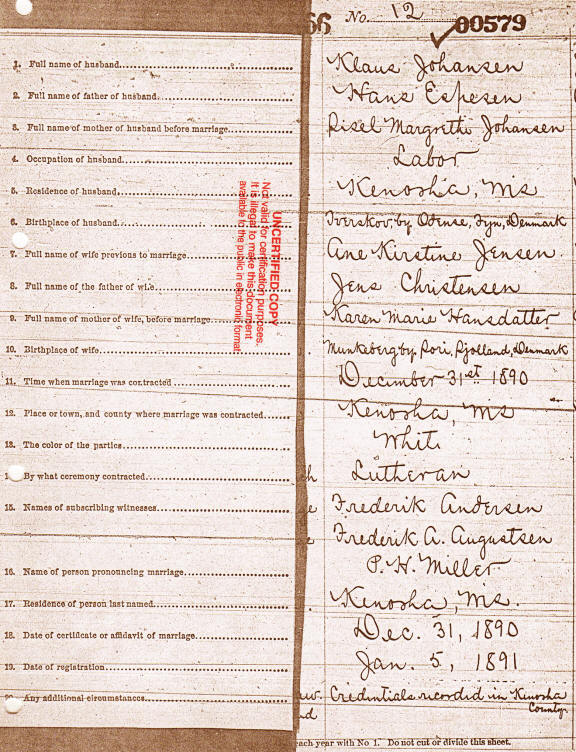 66 No. 12 00579
1. Full name of husband Klaus Johansen
2. Full name of father of husband Hans Espesen
3. Full name of mother of husband before marriage Disel Margrethe Johansen
4. Occupation of husband Labor
5. Residence of husband Kenosha, Wis
6. Birthplace of husband Iverskov, by Odense, Fyn, Denmark
7. Full name of wife previous to marriage Ane Kirstine Jensen
8. Full name of the father of wife Jens Christensen
9. Full name of mother of wife, before marriage Karen Marie Hansdatter
10. Birthplace of wife Munkeberg by Sorö, Sjolland, Denmark
11. Time when marriage was contracted December 31st 1890
12. Place or town, and county where marriage was contracted Kenosha, Wis
13. The color of the parties White
By what ceremony contracted Lutheran
15. Names of subscribing witnesses Frederik Andersen
Frederik A. Augustsen
16. Name of person pronouncing marriage P. H. Miller
17. Residence of person last named Kenosha, Wis.
18. Date of certificate or affidavit of marriage Dec. 31, 1890
19. Date of registration Jan. 5, 1891
20. Any additional circumstances Credentials recorded in Kenosha
County
each year with No 1. Do not cut or divide this sheet.
UNCERTIFIED COPY
Not valid for certification purposes.
It is illegal to make this document
available to the public in electronic format